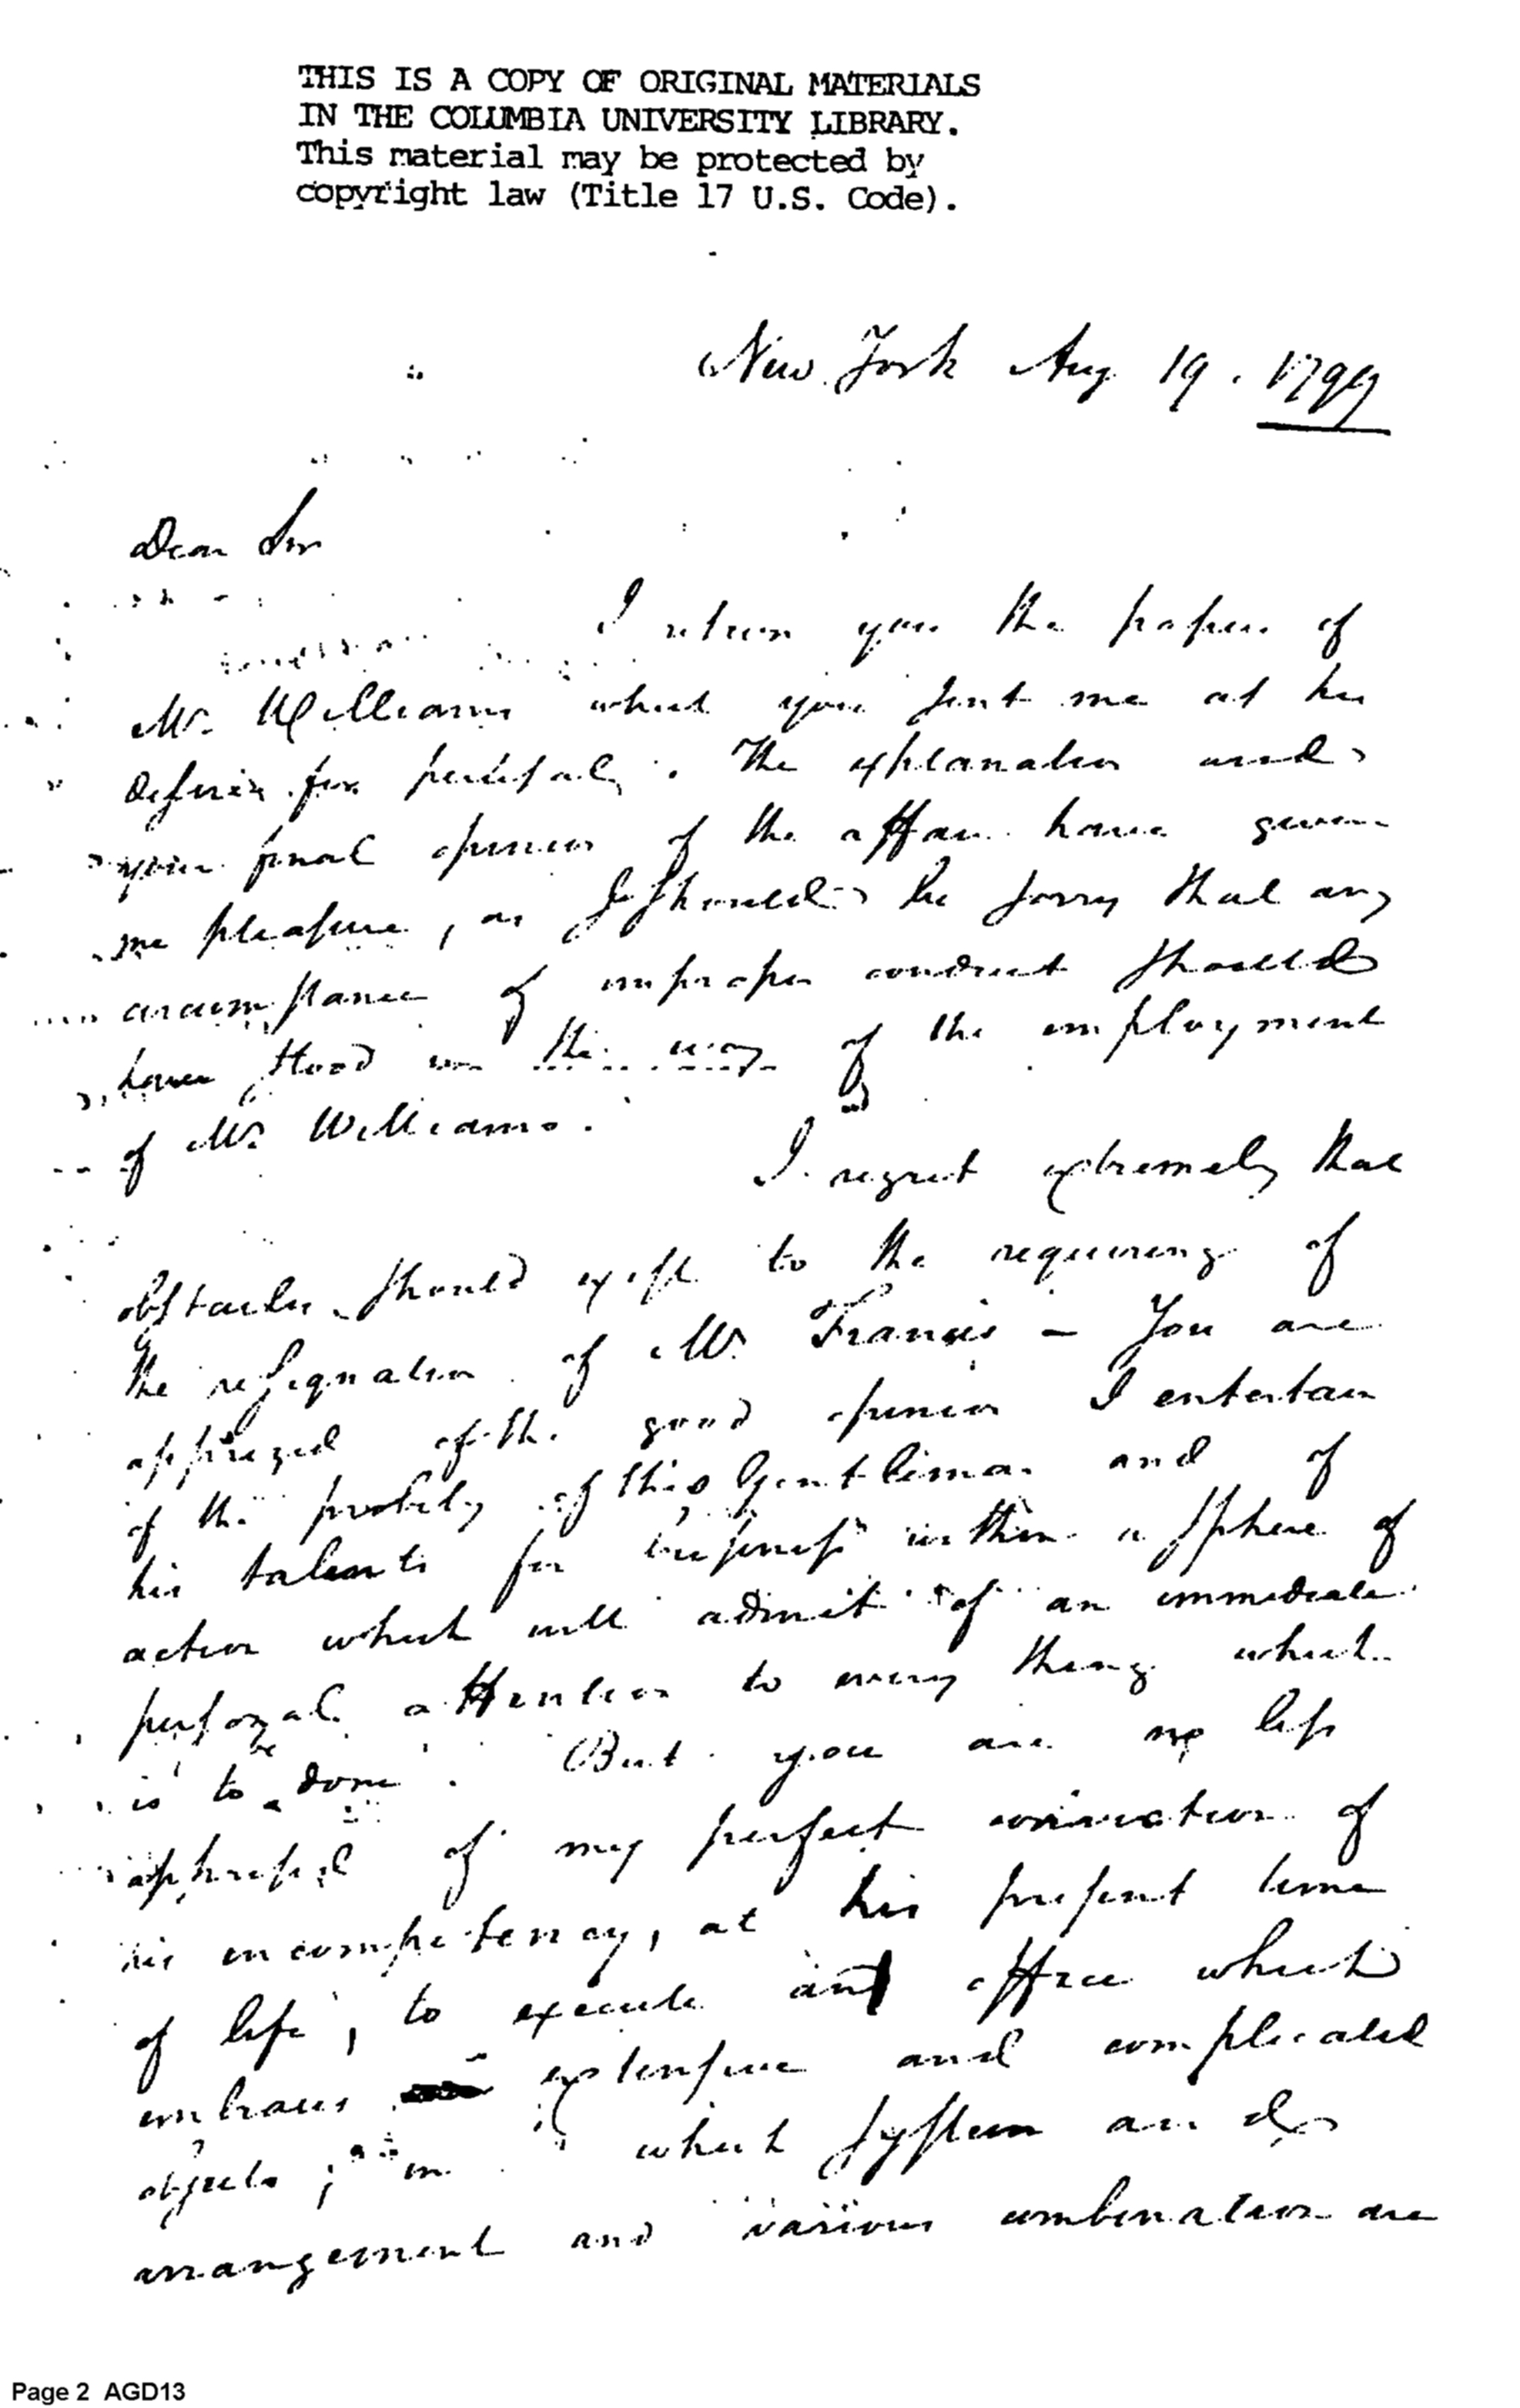 THIS IS A COPY OF ORIGINAL MATERIALS
IN THE COLUMBIA UNIVERSITY LIBRARY.
This material may be protected by
copyright law (Title 17 U.S. Code).
New York Aug 19. 1799
Dear Sir
I return you the papers of
Mr. Williams which you sent me at his
desire for perusal. The explanation and
your final opinion of the affair have given
me pleasure, as I should be sorry that any
circumstance of improper conduct should
have stood in the way of the employment
of Mr Williams.
I regret extremely that
obstacles should exist to the requiring of
the resignation of Mr. Francis — You are
apprized of the good opinion I entertain
of the probity of this Gentleman and of
his talents for business within a sphere of
action which will admit of an immediate
personal attention to every thing which
is to be done. But you are no less
apprised of my perfect conviction of
his incompetency, at his present time
of life, to execute an office which
embraces extensive and complicated
objects; in which system and
arrangement and various combination are
Page 2 AGD13